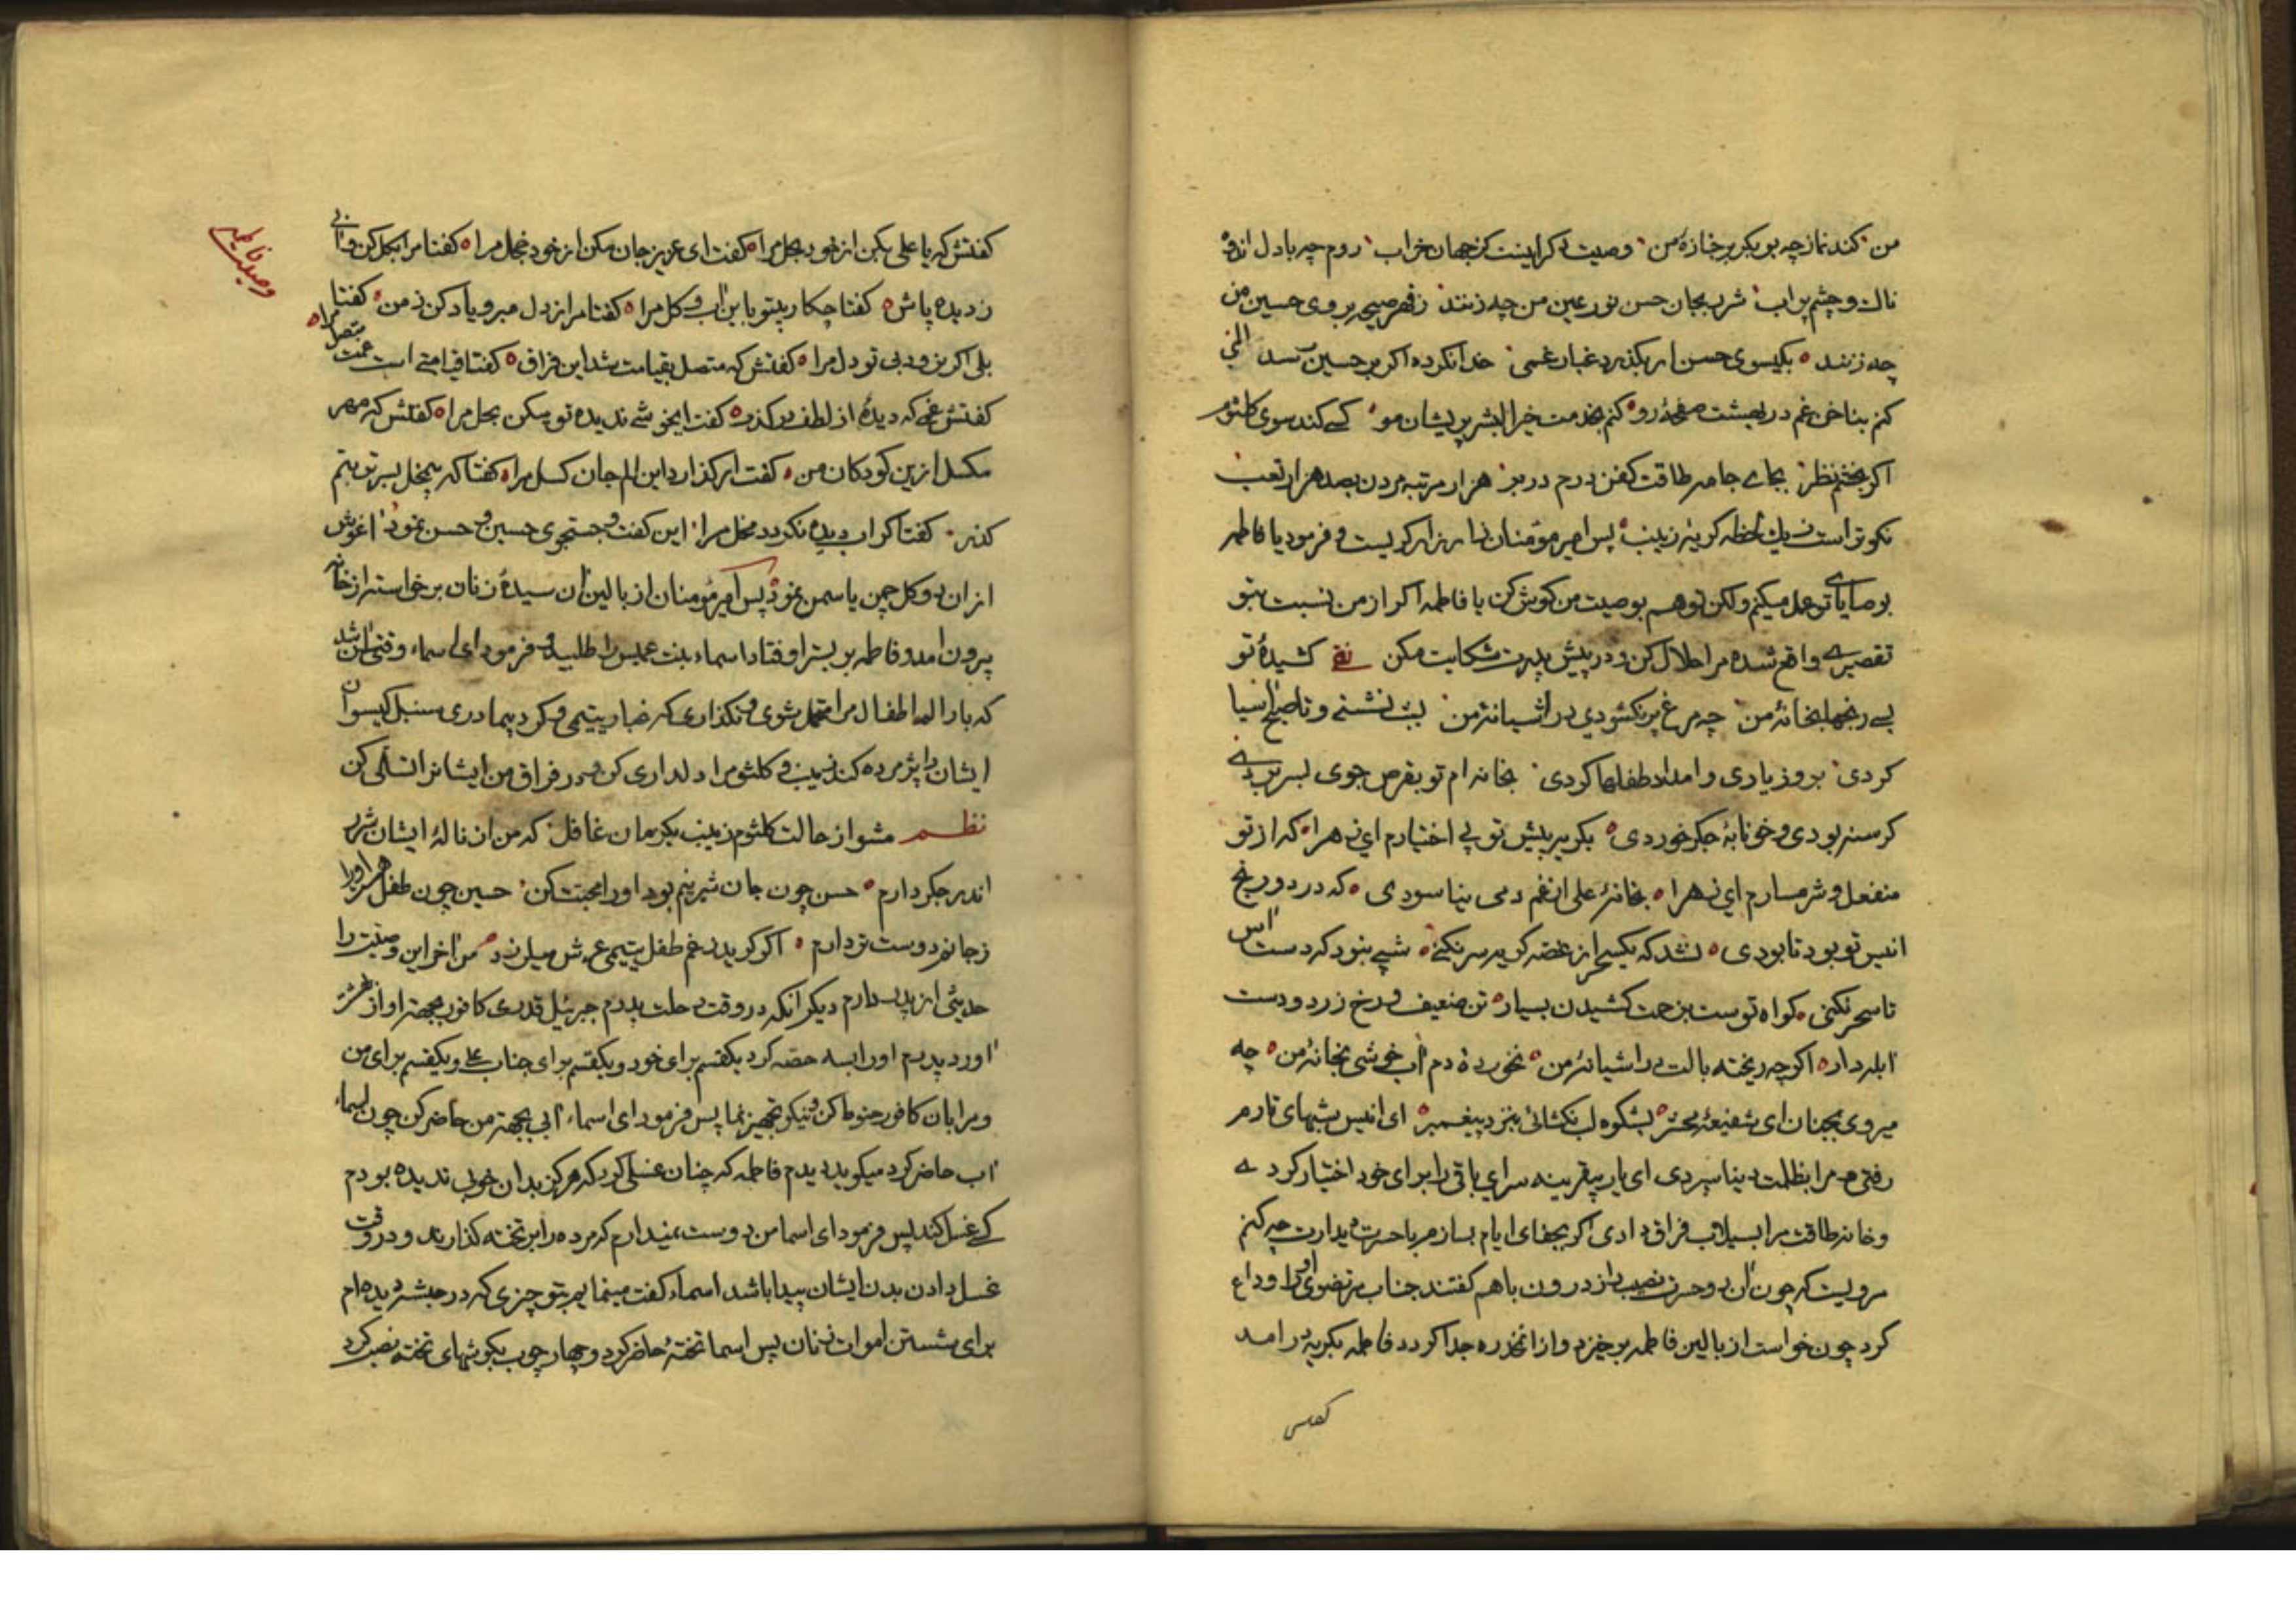 من کند نماز چه بوبکر بر جنازهٔ من وصیت دکر اینست کز جهان خراب روم چه با دل اندوه
ناك و چشم پر اب شرر بجان حسن نور عین من چه زنند زقهر صیحه بروی حسین من
چه زنند بکیسوی حسن ار بکذرد غبار غمی خدا نکرده اکر بر حسین رسد المی
کنم بناخن غم در بهشت صفحهٔ رو کنم بخدمت خیر البشر پریشان مو کسی کند سوی کلثوم
اکر بخشم نظر بجای جامه طاقت کفن درم در بر هزار مرتبه مردن بصد هزار تعب
نکوتر است ز یك لحظه کریهٔ زینب پس امیر مؤمنان زار زار کریست و فرمود یا فاطمه
بوصایای تو عمل میکنم ولکن تو هم بوصیت من کوش کن یا فاطمه اکر از من نسبت بتو
تقصیری واقع شده مرا حلال کن و در پیش پدرت شکایت مکن کشیدهٔ تو
بسی رنجها بخانهٔ من چه مرغ پر نکشودی در اشیانهٔ من بشب نشستی و تا صبح اسیا
کردی بروز یاری و امداد طفلها کردی بخانه ام تو بقرص جوی بسر بردی
کرسنه بودی و خونابهٔ جکر خوردی بکریه پیش تو بی اختیارم ای زهرا که از تو
منفعل و شرمسارم ای زهرا بخانهٔ علی از غم دمی نیاسودی که درد و رنج
انیس تو بود تا بودی نشد که یکسحر از غصه کریه سر نکنی شبی نبود که دست اس
تا سحر نکنی کواه تو ست بزحمت کشیدن بسیار تن ضعیف و رخ زرد و دست
ابله دار اکر چه ریخته بالت در اشیانهٔ من نخوردهٔ دم اب خوشی بخانهٔ من چه
میروی بجنان ای شفیعهٔ محشر بشکوه لب نکشائی بنزد پیغمبر ای انیس شبهای تارم
رفتی و مرا بظلمت دنیا سپردی ای یار بیقرینه سرای باقی را برای خود اختیار کردی
و خانه طاقت مرا بسیلاب فراق دادی اکر بجفای ایام بسازم با حسرت دیدارت چه کنم
مرویست که چون ان دو حسرت نصیب راز درون باهم کفتند جناب مرتضوی او را وداع
کرد چون خواست از بالین فاطمه برخیزد و از انمخدره جدا کردد فاطمه بکریه در امد
کفتش
وصیت فاطمه
کفتش که یا علی بکن از خود بحل مرا کفت ای عزیز جان مکن از خود خجل مرا کفتا مرا بکل کن و ابی
ز دیده پاش کفتا چکار بیتو باین اب و کل مرا کفتا مرا از دل مبر و یاد کن ز من کفتا
بلی اکر نرود بی تو دل مرا کفتش که متصل بقیامت شد این فراق کفتا قیامتی است غمت متصل مرا
کفتش غمی که دیدهٔ از لطف در کذر کفت ایخوشی ندیده تو میکن بحل مرا کفتش که مهر
مکسل ازین کودکان من کفت ار کذارد این الم جان کسل مرا کفتا که بر بستر تو بینم
کذر کفتا کر اب دیده نکردد مخل مرا این کفت و جستجوی حسین و حسن نمود اغوش
از ان دو کل چمن یاسمن نمود پس امیر مؤمنان از بالین ان سیدهٔ زنان برخواسته از خانه
بیرون امد و فاطمه بر بستر اوفتاد اسماء بنت عمیس را طلبید و فرمود ای اسماء وقتی ان شد
که بار الم اطفال مرا متحمل شوی و نکذاری که غبار یتیمی و کرد بیمادری سنبل کیسوان
ایشان را پژمرده کند زینب و کلثوم را دلداری کن و در فراق من ایشانرا تسلی کن
نظم مشو از حالت کلثوم زینب یکزمان غافل که من از نالهٔ ایشان شرر
اندر جکر دارم حسن چون جان شیرینم بود او را محبت کن حسین چون طفل هم او را
ز جانم دوست تر دارم اکر کرید ز غم طفل یتیمی عرش میلرزد من اخر این وصیت را
حدیثی از پدر دارم دیکر انکه در وقت رحلت پدرم جبرئیل قدری کافور بجهتر او از بهشت
اورد پدرم او را بسه حصه کرد یکقسم برای خود و یکقسم برای جناب علی و یکقسم برای من
و مرا بان کافور حنوط کن و نیکو تجهیز نما پس فرمود ای اسماء ابی بجهت من حاضر کن چون اسماء
اب حاضر کرد میکوید دیدم فاطمه که چنان غسلی کرد که هرکز بدان خوبی ندیده بودم
کسی غسل کند پس فرمود ای اسما من دوست نمیدارم که مرده را بر تخته کذارند و در وقت
غسل دادن بدن ایشان پیدا باشد اسماء کفت مینمایم بتو چیزی که در حبشه دیده ام
برای شستن اموات زنان پس اسما تختهٔ حاضر کرد و چهار چوب بکوشهای تخته نصب کرد